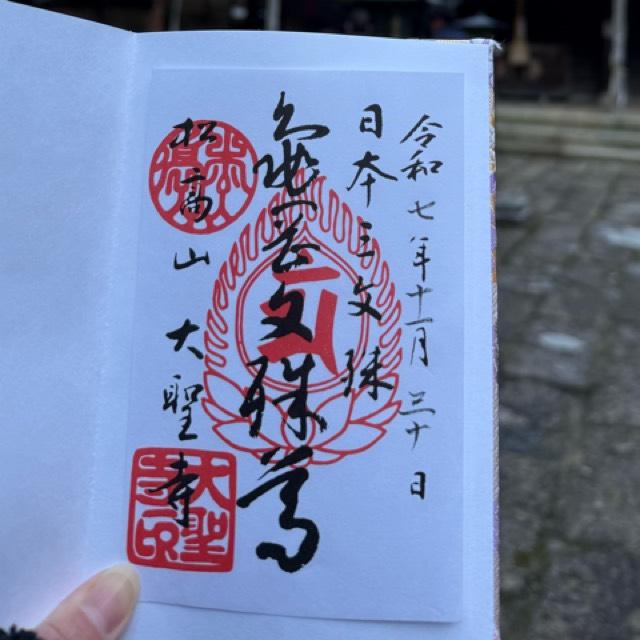 令和七年十一月三十日
日本三文殊
亀岡文殊尊
松高山 大聖寺
大聖寺印